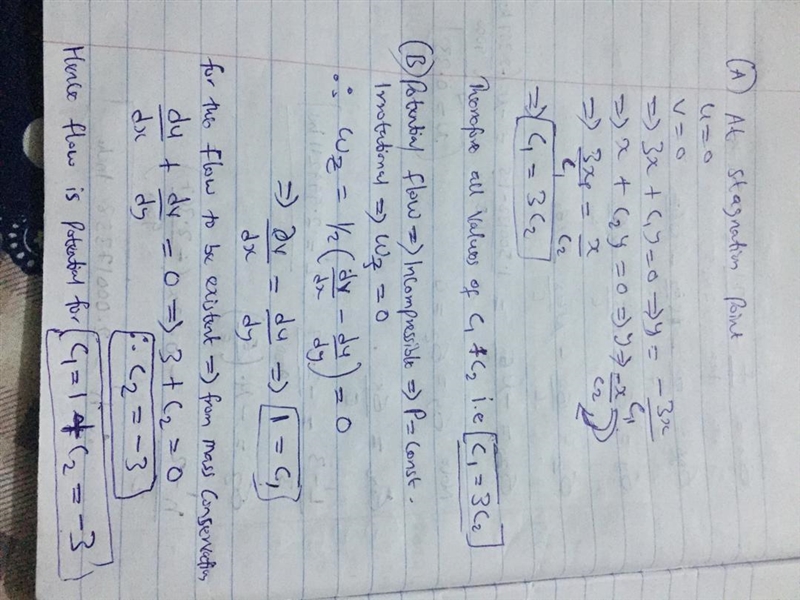 (A) At stagnation point
u=0
v=0
⇒ 3x + C₁y = 0 ⇒ y = -3x/C₁
⇒ x + C₂y = 0 ⇒ y ⇒ -x/C₂
⇒ 3x/C₁ = x/C₂
⇒ C₁ = 3C₂
Therefore all values of C₁ & C₂ i.e C₁ = 3C₂
(B) Potential flow ⇒ Incompressible ⇒ P = Const.
Irrotational ⇒ ω_z = 0
∴ ω_z = 1/2 (dv/dx - du/dy) = 0
⇒ ∂v/dx = du/dy ⇒ 1 = C₁
for the flow to be existent ⇒ from mass Conservation
du/dx + dv/dy = 0 ⇒ 3 + C₂ = 0
∴ C₂ = -3
Hence flow is potential for C₁ = 1 & C₂ = -3